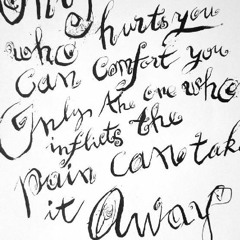 hurts you
who
can comfort you
Only the one who
inflicts the
pain can take
it away